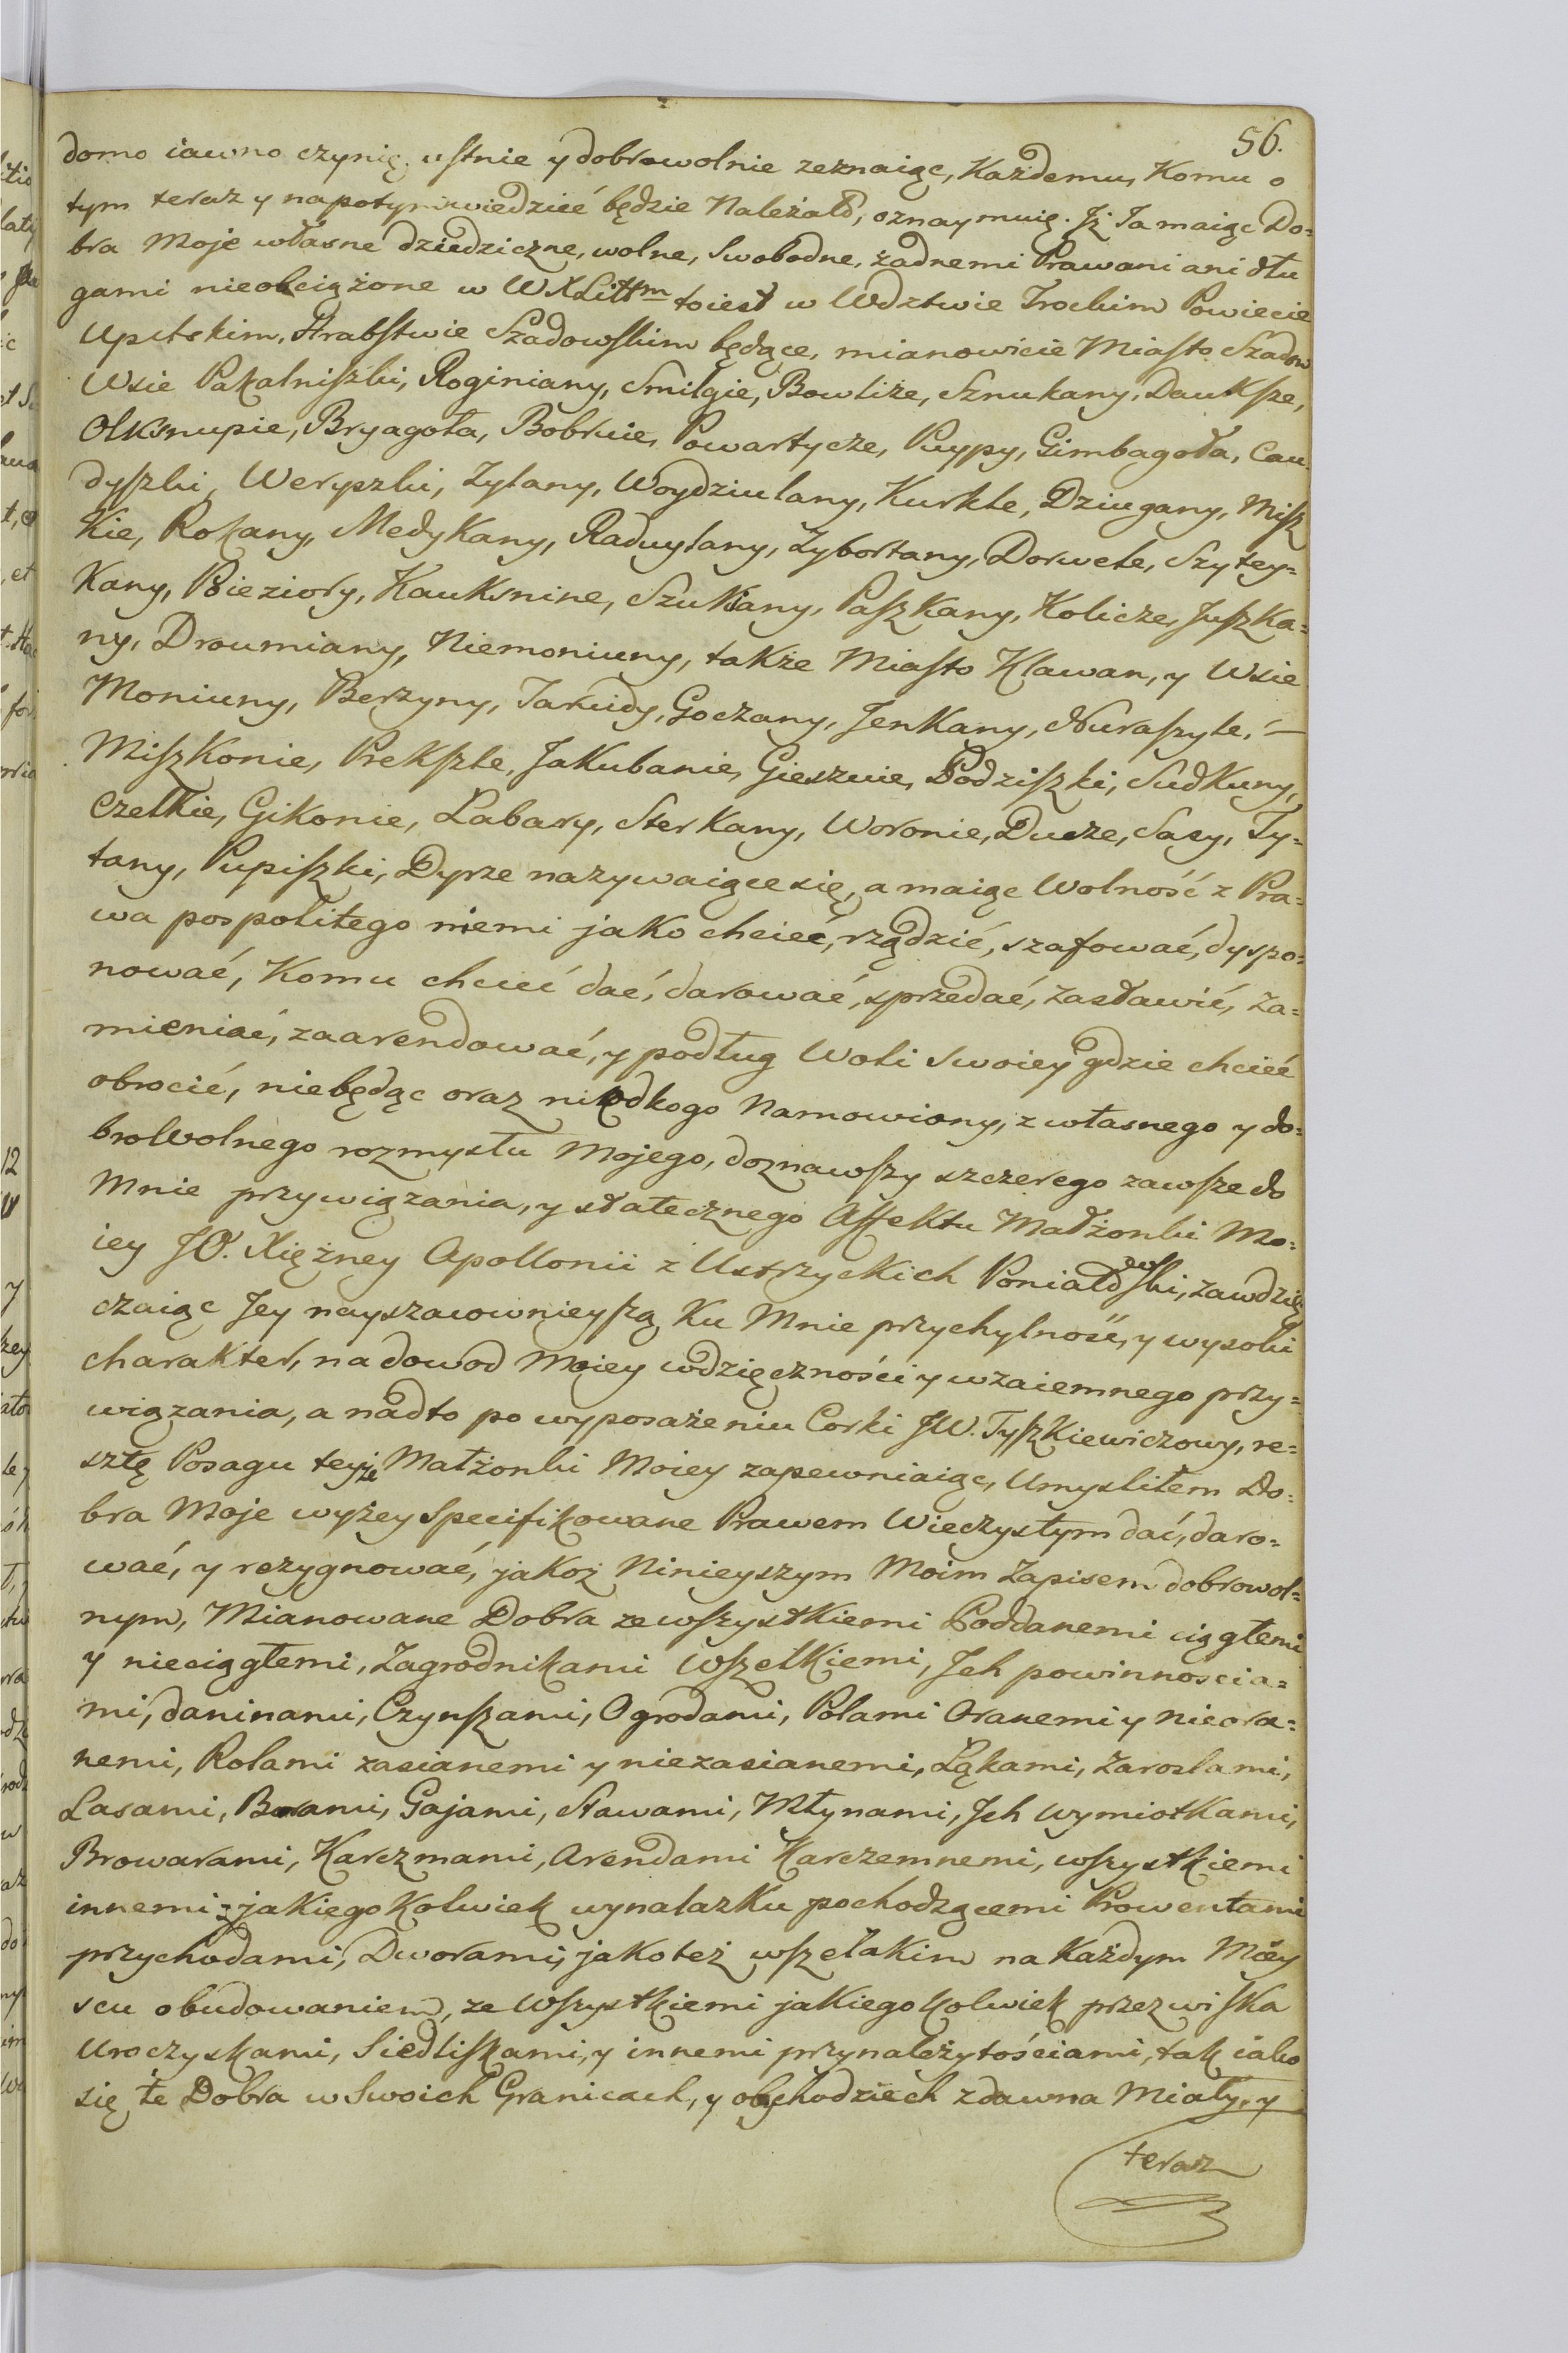 56.
domo iawno czynię, ustnie y dobrowolnie zeznaiąc, Każdemu, Komu o
tym teraz y napotym wiedzieć będzie Należało, oznaymuię. Jż Ja maiąc Do=
bra Moje własne dziedziczne, wolne, Swobodne, żadnemi Prawami ani dłu
gami nieobciążone w WXLittm toiest w Wdztwie Trockim Powiecie
Upitskim, Hrabstwie Szadowskim będące, mianowicie Miasto Szadow
Wsie Pakalniszki, Roginiany, Smilgie, Bowliże, Sznukany, Dauksze,
Olksnupie, Bryagoła, Bobruie, Powartycze, Puypy, Gimbagoła, Cau
dyszki, Weryszki, Zylany, Woydziulany, Kurkle, Dziugany, Misz
Kie, Rokany, Medykany, Raduylany, Zybortany, Dorwele, Szytey=
Kany, Bieziory, Kauksnine, Szukiany, Paszkany, Kolicze, Juszka=
ny, Droumiany, Niemoniuny, także Miasto Klawan, y Wsie
Moniuny, Berzyny, Jakuidy, Goczany, Jenkany, Nuraszyle, —
Miszkonie, Prekszle, Jakubanie, Gieszwie, Podziszki, Sudkuny,
Czelkie, Gikonie, Labary, Sterkany, Woronie, Ducze, Sasy, Ty=
tany, Pupiszki, Dyrze nazywaiące się, a maiąc Wolność z Pra=
wa pospolitego niemi jako chcieć, rządzić, szafować, dyspo=
nować, Komu chcieć dać, darować, sprzedać, Zastawić, Za=
mieniać, zaarendować, y podług Woli Swoiey gdzie chcieć
obrocić, niebędąc oraz niodkogo Namowiony, z własnego y do=
broWolnego rozmysłu Mojego, doznawszy szczerego zawsze do
Mnie przywiązania, y statecznego Affektu Małżonki Mo=
iey JO. Xiężney Apollonii z Ustrzyckich Poniatowski, zawdzię
czaiąc Jey nayszacownieyszą Ku Mnie przychylność, y wysoki
charakter, na dowod Moiey wdzięczności y wzaiemnego przy=
wiązania, a nadto po wyposażeniu Corki JW. Tyszkiewiczowy, re=
sztę Posagu teyże Małżonki Moiey zapewniaiąc, Umysliłem Do=
bra Moje wyżey Specifikowane Prawem Wieczystym dać, daro=
wać, y rezygnować, jakoż Ninieyszym Moim Zapisem dobrowol=
nym, Mianowane Dobra ze wszystkiemi Poddanemi ciągłemi
y nieciągłemi, Zagrodnikami Wszelkiemi, Jch powinnościa=
mi, daninami, Czynszami, Ogrodami, Polami Oranemi y nieora=
nemi, Rolami zasianemi y niezasianemi, Łąkami, Zaroslami,
Lasami, Borami, Gajami, Stawami, Młynami, Jch Wymiotkami,
Browarami, Karczmami, Arendami Karczemnemi, wszystkiemi
innemi z jakiegokolwiek wynalazku pochodzącemi Prowentami
przychodami, Dworami, jako też wszelakim na Każdym Miey
scu obudowaniem, ze Wszystkiemi jakiegokolwiek przezwiska
Uroczyskami, Siedliskami, y innemi przynależytościami, tak iako
się te Dobra w Swoich Granicach, y obchodziech zdawna Miały, y
teraz